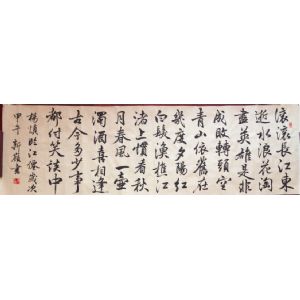 滚滚長江東
逝水浪花淘
盡英雄是非
成敗轉頭空
青山依舊在
幾度夕陽紅
白髮漁樵江
渚上慣看秋
月春風一壺
濁酒喜相逢
古今多少事
都付笑談中
楊慎臨江僊歲次
甲午 書